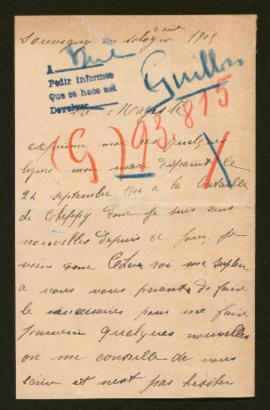 Souvigny Sologne 2 aout 1915
A
Pedir informes
Que se hace así
Devolver
Guillon
(G) 93,815
X
Majesté
exprimer par ces quelques
lignes mon mari disparut le
22 septembre 1914 a la bataille
de Cheppy dont je suis sans
nouvelles depuis ce jour, je
viens
a vous vous priant de faire
le necessaire pour me faire
parvenir quelques nouvelles
on me conseille de vous
ecrire et n'est pas hésiter